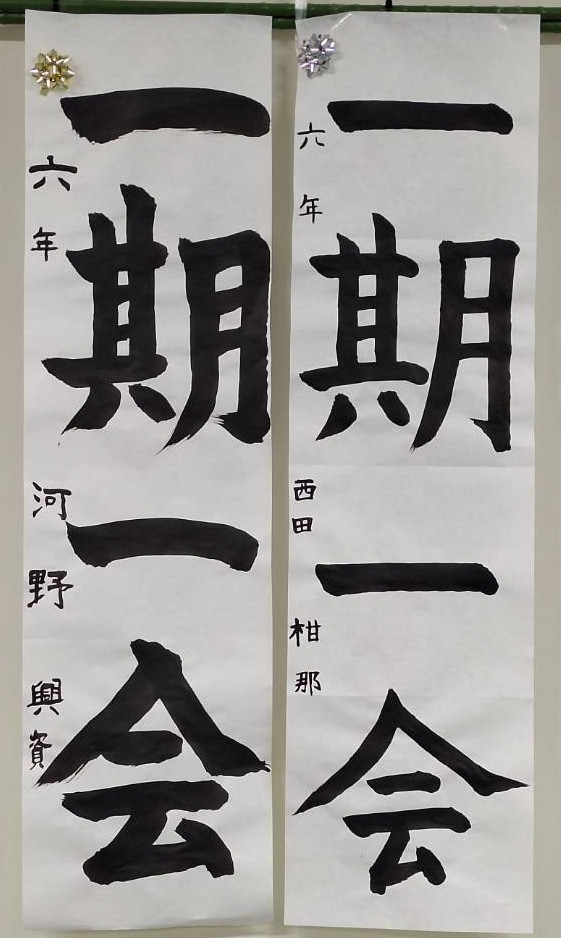 一期一会
六年 西田 柑那
一期一会
六年 河野 興資